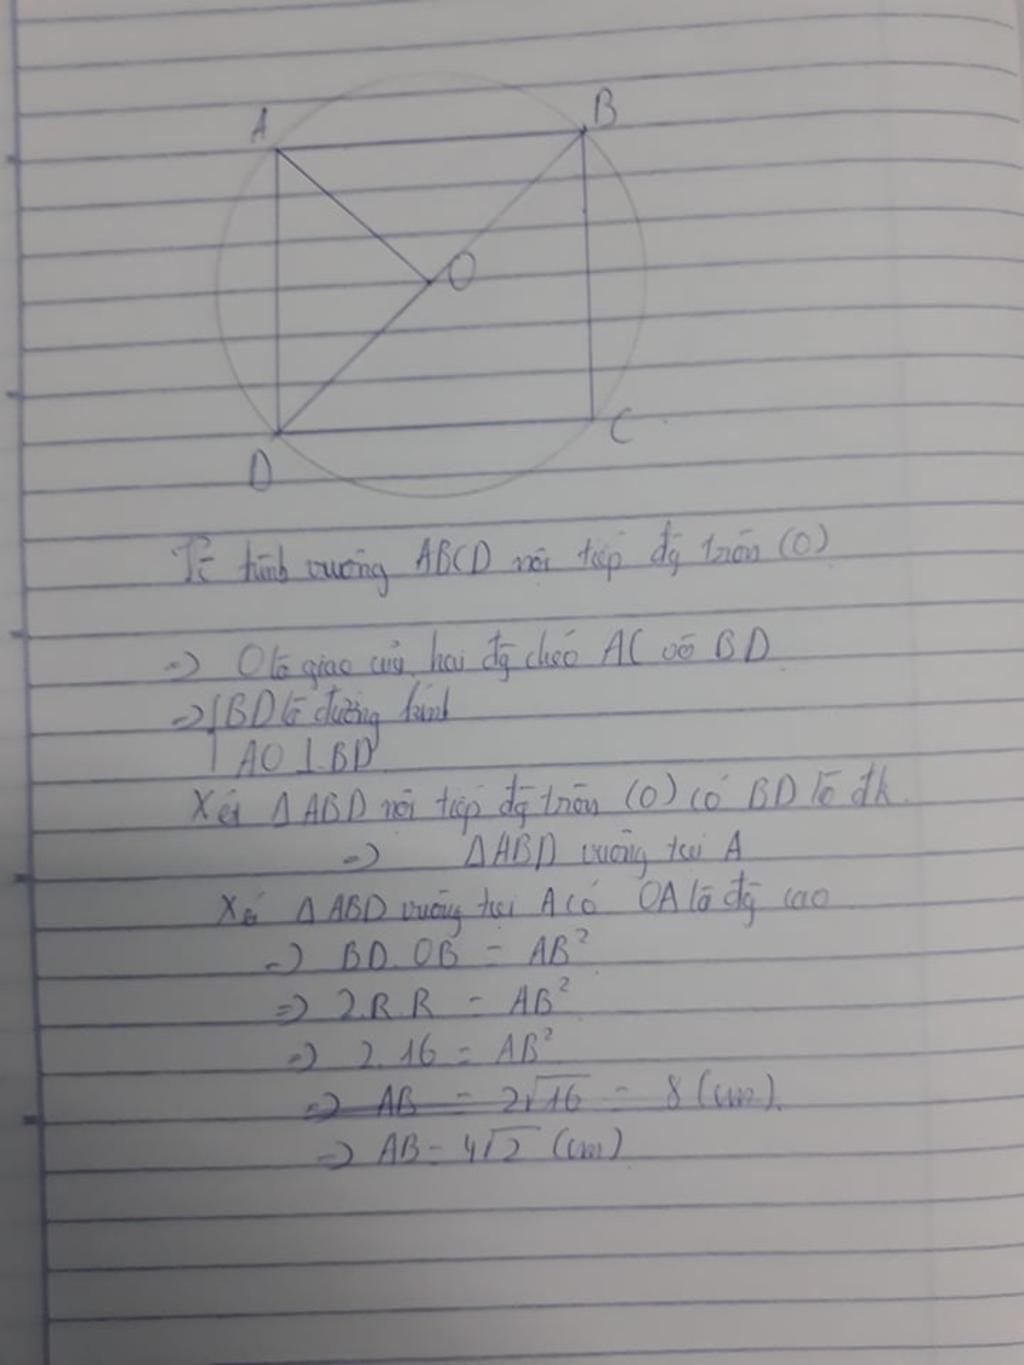 A
B
O
C
D
Từ hình vuông ABCD nội tiếp đg tròn (O)
=> O là giao của hai đg chéo AC và BD
=> { BD là đường kính
AO ⊥ BD
Xét Δ ABD nội tiếp đg tròn (O) có BD là đk.
=> Δ ABD vuông tại A
Xét Δ ABD vuông tại A có OA là đg cao
=> BD.OB = AB²
=> 2.R.R = AB²
=> 2.16 = AB²
=> AB = 2√16 = 8 (cm).
=> AB = 4√2 (cm)